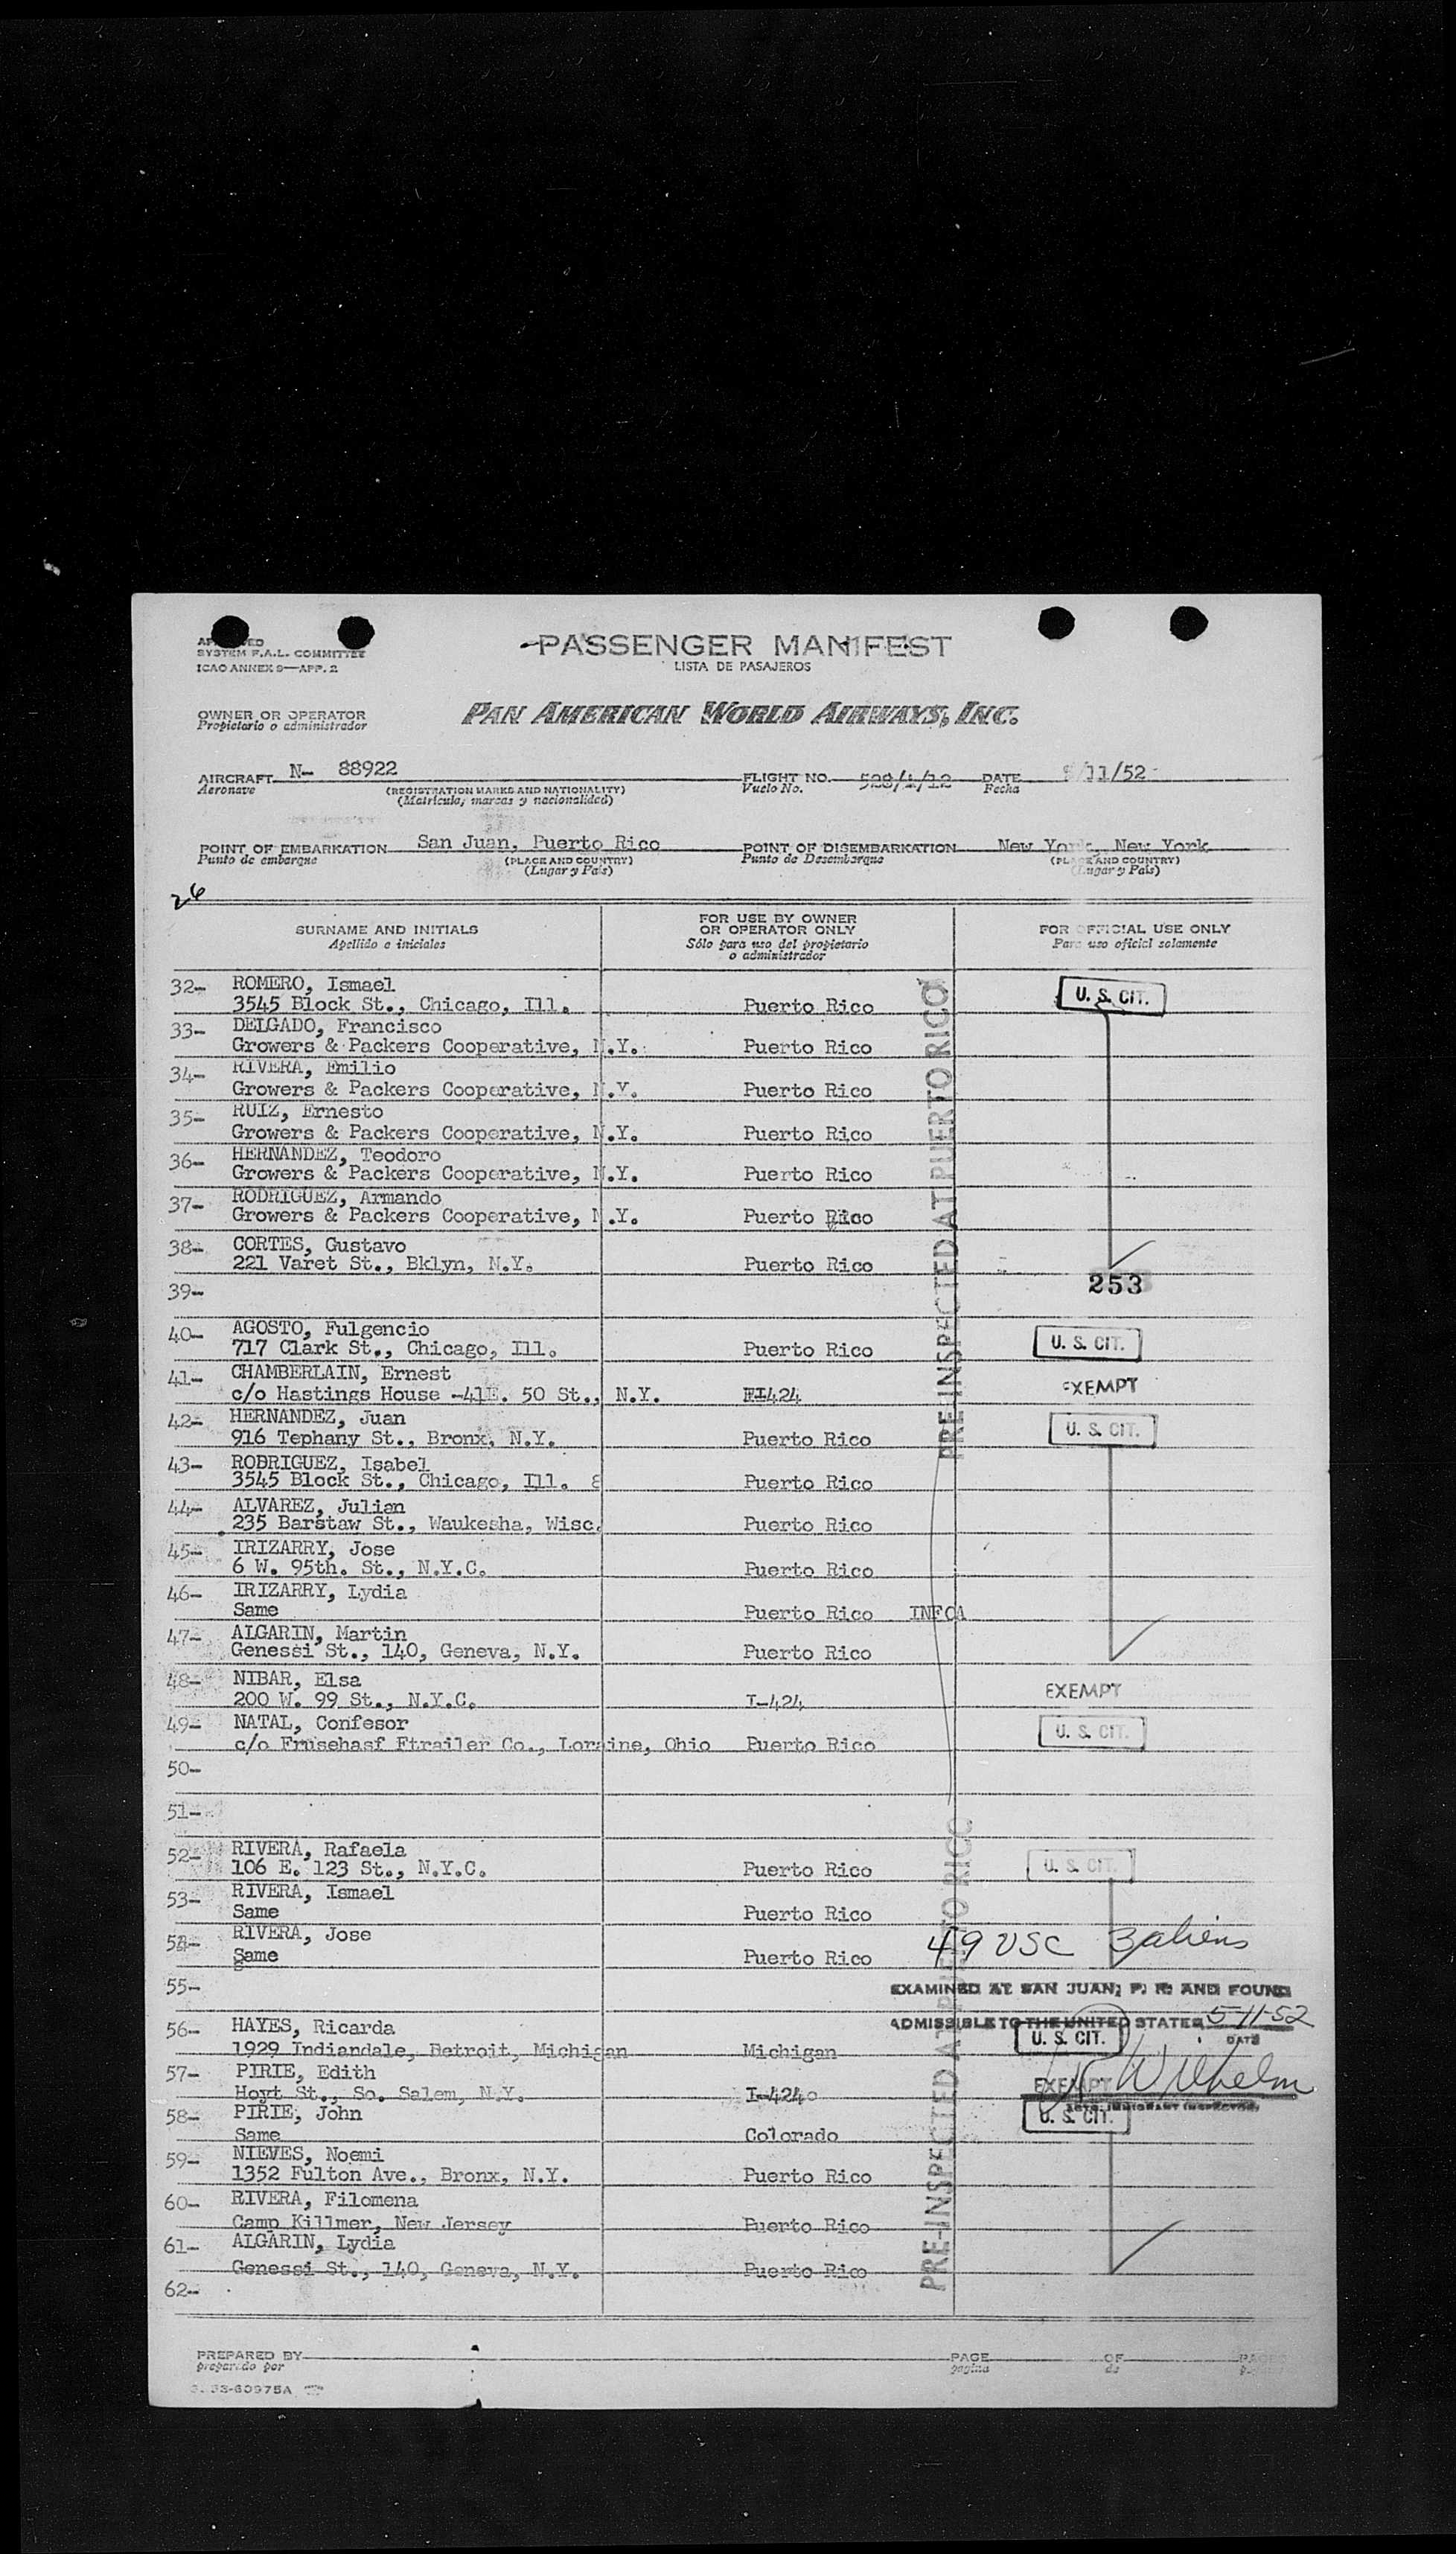 SYSTEM F.A.L. COMMITTEE
ICAO ANNEX 9—APP. 2
PASSENGER MANIFEST
LISTA DE PASAJEROS
OWNER OR OPERATOR
Propietario o administrador
PAN AMERICAN WORLD AIRWAYS, INC.
AIRCRAFT N- 88922 FLIGHT NO. 528/4/12 DATE 5/11/52
Aeronave (REGISTRATION MARKS AND NATIONALITY) Vuelo No. Fecha
(Matrícula, marcas y nacionalidad)
POINT OF EMBARKATION San Juan, Puerto Rico POINT OF DISEMBARKATION New York, New York
Punto de embarque (PLACE AND COUNTRY) Punto de Desembarque (PLACE AND COUNTRY)
(Lugar y País) (Lugar y País)
26
SURNAME AND INITIALS FOR USE BY OWNER OR OPERATOR ONLY FOR OFFICIAL USE ONLY
Apellido e iniciales Sólo para uso del propietario o administrador Para uso oficial solamente
32- ROMERO, Ismael
3545 Block St., Chicago, Ill. Puerto Rico U. S. CIT.
33- DELGADO, Francisco
Growers & Packers Cooperative, N.Y. Puerto Rico
34- RIVERA, Emilio
Growers & Packers Cooperative, N.Y. Puerto Rico
35- RUIZ, Ernesto
Growers & Packers Cooperative, N.Y. Puerto Rico
36- HERNANDEZ, Teodoro
Growers & Packers Cooperative, N.Y. Puerto Rico
37- RODRIGUEZ, Armando
Growers & Packers Cooperative, N.Y. Puerto Rico
38- CORTES, Gustavo
221 Varet St., Bklyn, N.Y. Puerto Rico
39- 253
40- AGOSTO, Fulgencio
717 Clark St., Chicago, Ill. Puerto Rico U. S. CIT.
41- CHAMBERLAIN, Ernest
c/o Hastings House -41E. 50 St., N.Y. I424 EXEMPT
42- HERNANDEZ, Juan
916 Tephany St., Bronx, N.Y. Puerto Rico U. S. CIT.
43- RODRIGUEZ, Isabel
3545 Block St., Chicago, Ill. Puerto Rico
44- ALVAREZ, Julian
235 Barstaw St., Waukesha, Wisc. Puerto Rico
45- IRIZARRY, Jose
6 W. 95th. St., N.Y.C. Puerto Rico
46- IRIZARRY, Lydia
Same Puerto Rico INFOA
47- ALGARIN, Martin
Genessi St., 140, Geneva, N.Y. Puerto Rico
48- NIBAR, Elsa
200 W. 99 St., N.Y.C. I-424 EXEMPT
49- NATAL, Confesor
c/o Frusehasf Ftrailer Co., Loraine, Ohio Puerto Rico U. S. CIT.
50-
51-
52- RIVERA, Rafaela
106 E. 123 St., N.Y.C. Puerto Rico U. S. CIT.
53- RIVERA, Ismael
Same Puerto Rico
54- RIVERA, Jose
Same Puerto Rico
49 USC 3 aliens
55-
EXAMINED AT SAN JUAN, P. R. AND FOUND
ADMISSIBLE TO THE UNITED STATES 5-11-52
DATE
56- HAYES, Ricarda
1929 Indiandale, Detroit, Michigan Michigan U. S. CIT.
57- PIRIE, Edith
Hoyt St., So. Salem, N.Y. I-424 EXEMPT Wilhelm
IMMIGRANT INSPECTOR
58- PIRIE, John
Same Colorado U. S. CIT.
59- NIEVES, Noemi
1352 Fulton Ave., Bronx, N.Y. Puerto Rico
60- RIVERA, Filomena
Camp Killmer, New Jersey Puerto Rico
61- ALGARIN, Lydia
Genessi St., 140, Geneva, N.Y. Puerto Rico
62-
PRE-INSPECTED AT PUERTO RICO
PRE-INSPECTED AT PUERTO RICO
PREPARED BY PAGE OF PAGES
preparado por pagina de